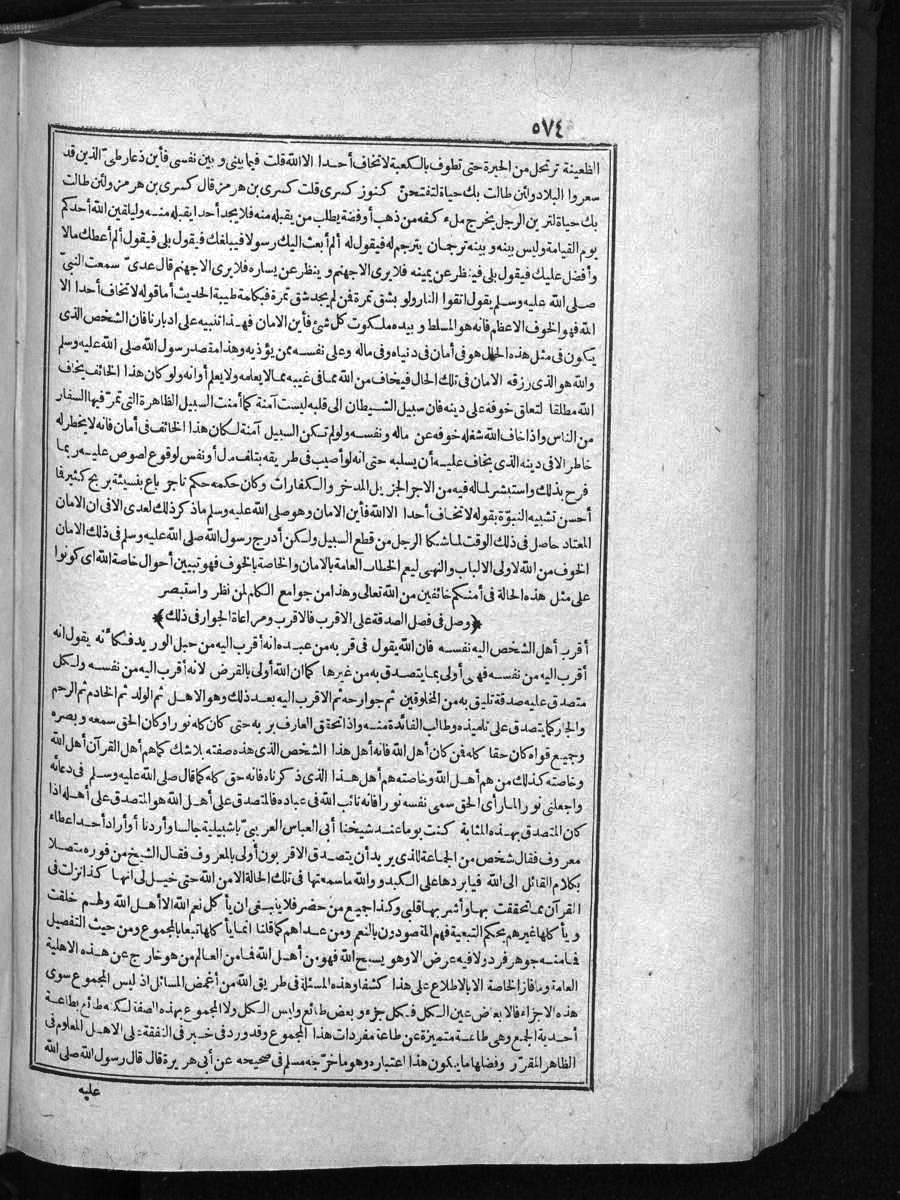 ٥٧٤
الظعينة ترتحل من الحيرة حتى تطوف بالكعبة لا تخاف أحدا الا الله قلت فيما بيني وبين نفسي فأين ذعار طيّ الذين قد
سعروا البلاد ولئن طالت بك حياة لتفتحنّ كنوز كسرى قلت كسرى بن هرمز قال كسرى بن هرمز ولئن طالت
بك حياة لترين الرجل يخرج ملء كفه من ذهب أو فضة يطلب من يقبله منه فلا يجد أحدا يقبله منه وليلقين الله أحدكم
يوم القيامة وليس بينه وبينه ترجمان يترجم له فيقول له ألم أبعث اليك رسولا فيبلغك فيقول بلى فيقول ألم أعطك مالا
وأفضل عليك فيقول بلى فينظر عن يمينه فلا يرى الا جهنم وينظر عن يساره فلا يرى الا جهنم قال عدىّ سمعت النبيّ
صلى الله عليه وسلم يقول اتقوا النار ولو بشق تمرة فمن لم يجد شق تمرة فبكلمة طيبة الحديث أما قوله لا تخاف أحدا الا
الله فهو الخوف الاعظم فانه هو المسلط وبيده ملكوت كل شئ فأين الامان فهذا تنبيه على ادبارنا فان الشخص الذى
يكون فى مثل هذه الحال هو فى أمان فى دنياه وفى ماله وعلى نفسه ممن يؤذيه وهذا مقصد رسول الله صلى الله عليه وسلم
والله هو الذى رزقه الامان فى تلك الحال فيخاف من الله مما فى غيبه مما لا يعلمه ولا يعلم أوانه ولو كان هذا الخائف يخاف
الله مطلقا لتعلق خوفه على دينه فان سبيل الشيطان الى قلبه ليست آمنة كما أمنت السبيل الظاهرة التى تمرّ فيها السفار
من الناس واذا خاف الله شغله خوفه عن ماله ونفسه ولو لم تكن السبيل آمنة لكان هذا الخائف فى أمان فانه لا يخطر له
خاطر الا فى دينه الذى يخاف عليه أن يسلبه حتى انه لو أصيب فى طريقه بتلف مال أو نفس لوقوع لصوص عليه ربما
فرح بذلك واستبشر لما له فيه من الاجر الجزيل المدخر والكفارات وكان حكمه حكم تاجر باع بنسيئة بربح كثير فما
أحسن تشبيه النبوّة بقوله لا تخاف أحدا الا الله فأين الامان وهو صلى الله عليه وسلم ماذكر ذلك لعدى الا فى ان الامان
المعتاد حاصل فى ذلك الوقت لما شكا الرجل من قطع السبيل ولكن أدرج رسول الله صلى الله عليه وسلم فى ذلك الامان
الخوف من الله لاولى الالباب والنهى ليعم الخطاب العامة بالامان والخاصة بالخوف فهو تبيين أحوال خاصة الله اى كونوا
على مثل هذه الحالة فى أمنكم خائفين من الله تعالى وهذا من جوامع الكلم لمن نظر واستبصر
﴿وصل فى فضل الصدقة على الاقرب فالاقرب ومراعاة الجوار فى ذلك﴾
أقرب أهل الشخص اليه نفسه فان الله يقول فى قربه من عبده انه أقرب اليه من حبل الوريد فكأنه يقول انه
أقرب اليه من نفسه فهى أولى بما يتصدق به من غيرها كما ان الله أولى بالقرض لانه أقرب اليه من نفسه ولكل
متصدق عليه صدقة تليق به من المخلوقين ثم جوارحه ثم الاقرب اليه بعد ذلك وهو الاهل ثم الولد ثم الخادم ثم الرحم
والجار كما يتصدق على تلميذه وطالب الفائدة منه واذا تحقق العارف بربه حتى كان كله نورا وكان الحق سمعه وبصره
وجميع قواه كان حقا كله فمن كان أهل الله فانه أهل هذا الشخص الذى هذه صفته بلا شك كما هم أهل القرآن أهل الله
وخاصته كذلك من هم أهل الله وخاصته هم أهل هذا الذى ذكرناه فانه حق كله كما قال صلى الله عليه وسلم فى دعائه
واجعلنى نورا لما رأى الحق سمى نفسه نورا فانه نائب الله فى عباده فالمتصدق على أهل الله هو المتصدق على أهله اذا
كان المتصدق بهذه المثابة كنت يوما عند شيخنا أبى العباس العريبيّ باشبيلية جالسا وأردنا أو أراد أحد اعطاء
معروف فقال شخص من الجماعة للذى يريد أن يتصدق الاقربون أولى بالمعروف فقال الشيخ من فوره متصلا
بكلام القائل الى الله فيا بردها على الكبد ووالله ما سمعتها فى تلك الحالة الا من الله حتى خيل لى انها كذا نزلت فى
القرآن مما تحققت بها وأشربها قلبى وكذا جميع من حضر فلا ينبغى ان يأكل نعم الله الا أهل الله ولهم خلقت
ويأكلها غيرهم بحكم التبعية فهم المقصودون بالنعم ومن عداهم كما قلنا انما يأكلها تبعا بالمجموع ومن حيث التفصيل
فما منه جوهر فرد ولا فيه عرض الا وهو يسبح الله فهو من أهل الله فما من العالم من هو خارج عن هذه الاهلية
العامة وما فاز الخاصة الا بالاطلاع على هذا كشفا وهذه المسئلة فى طريق الله من أغمض المسائل اذ ليس المجموع سوى
هذه الاجزاء فالابعاض عين الكل فكل جزء وبعض طائع وليس الكل ولا المجموع بهذه الصفة لكنه طائع بطاعة
أحدية الجمع وهى طاعة متميزة عن طاعة مفردات هذا المجموع وقد ورد فى خبر فى النفقة على الاهل المعلوم فى
الظاهر المقرّر وفضلها ما يكون هذا اعتباره وهو ما خرّجه مسلم فى صحيحه عن أبى هريرة قال قال رسول الله صلى الله
عليه